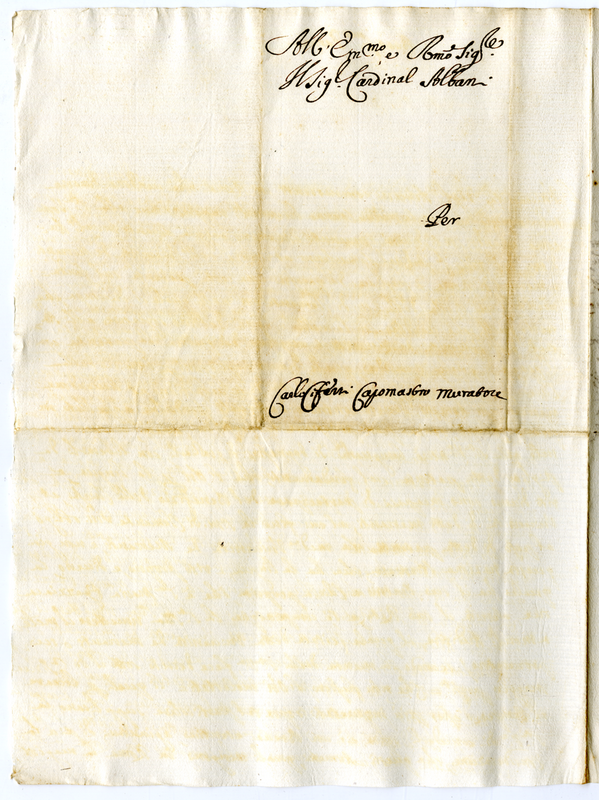 All' Em.mo e Rmo Sig.re
Il Sig.r Cardinal Albani
Per
Carlo Capomastro Muratore